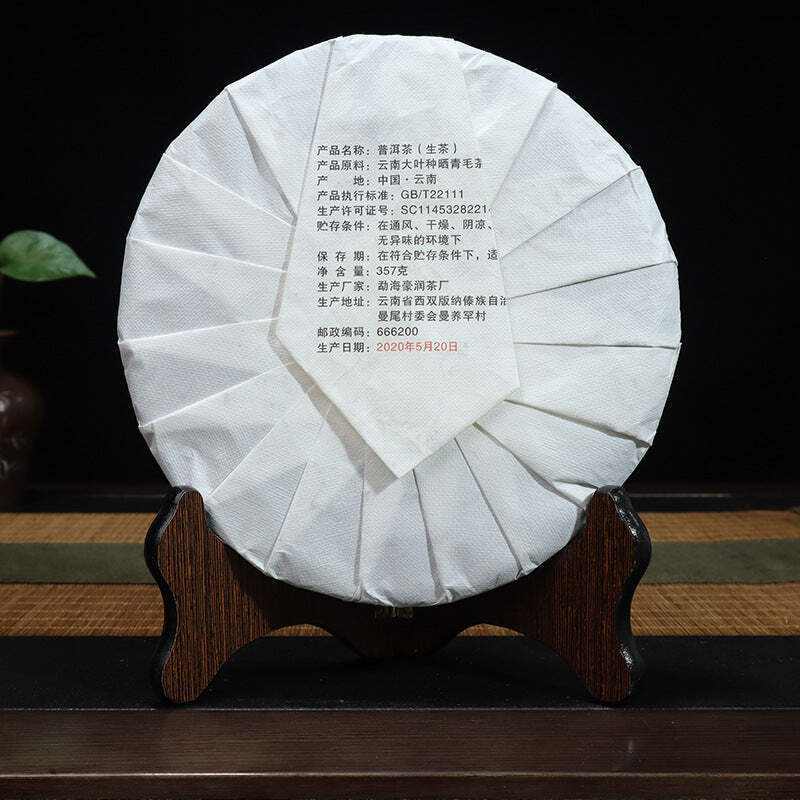 产品名称：普洱茶（生茶）
产品原料：云南大叶种晒青毛茶
产 地：中国·云南
产品执行标准：GB/T22111
生产许可证号：SC1145328221
贮存条件：在通风、干燥、阴凉、
无异味的环境下
保 存 期：在符合贮存条件下，适
净 含 量：357克
生产厂家：勐海豪润茶厂
生产地址：云南省西双版纳傣族自治
曼尾村委会曼养罕村
邮政编码：666200
生产日期：2020年5月20日